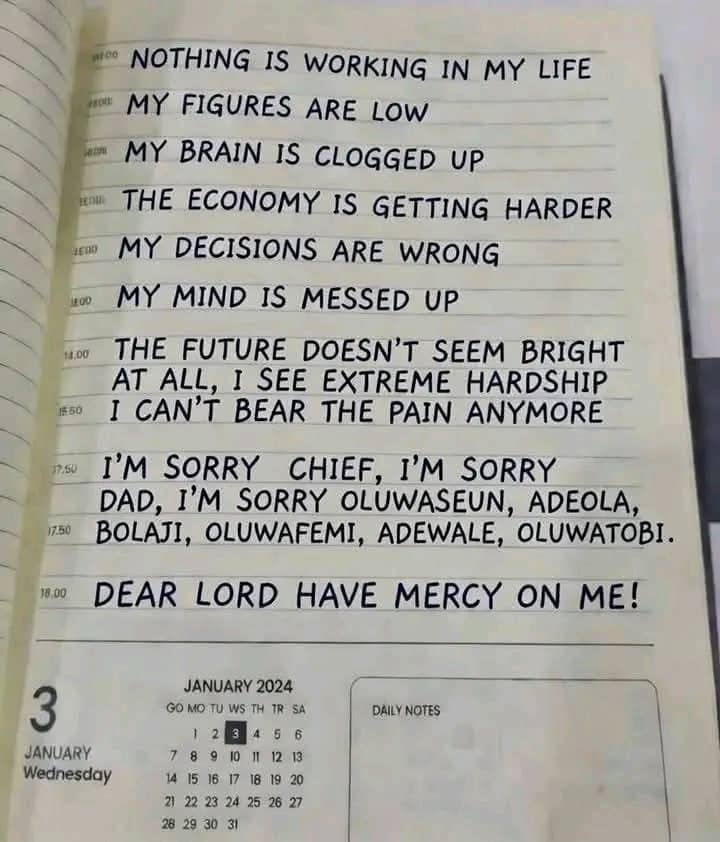 NOTHING IS WORKING IN MY LIFE
MY FIGURES ARE LOW
MY BRAIN IS CLOGGED UP
THE ECONOMY IS GETTING HARDER
MY DECISIONS ARE WRONG
MY MIND IS MESSED UP
14.00 THE FUTURE DOESN'T SEEM BRIGHT
AT ALL, I SEE EXTREME HARDSHIP
I CAN'T BEAR THE PAIN ANYMORE
17.50 I'M SORRY CHIEF, I'M SORRY
DAD, I'M SORRY OLUWASEUN, ADEOLA,
17.50 BOLAJI, OLUWAFEMI, ADEWALE, OLUWATOBI.
18.00 DEAR LORD HAVE MERCY ON ME!
3
JANUARY
Wednesday
JANUARY 2024
GO MO TU WS TH TR SA
1 2 3 4 5 6
7 8 9 10 11 12 13
14 15 16 17 18 19 20
21 22 23 24 25 26 27
28 29 30 31
DAILY NOTES